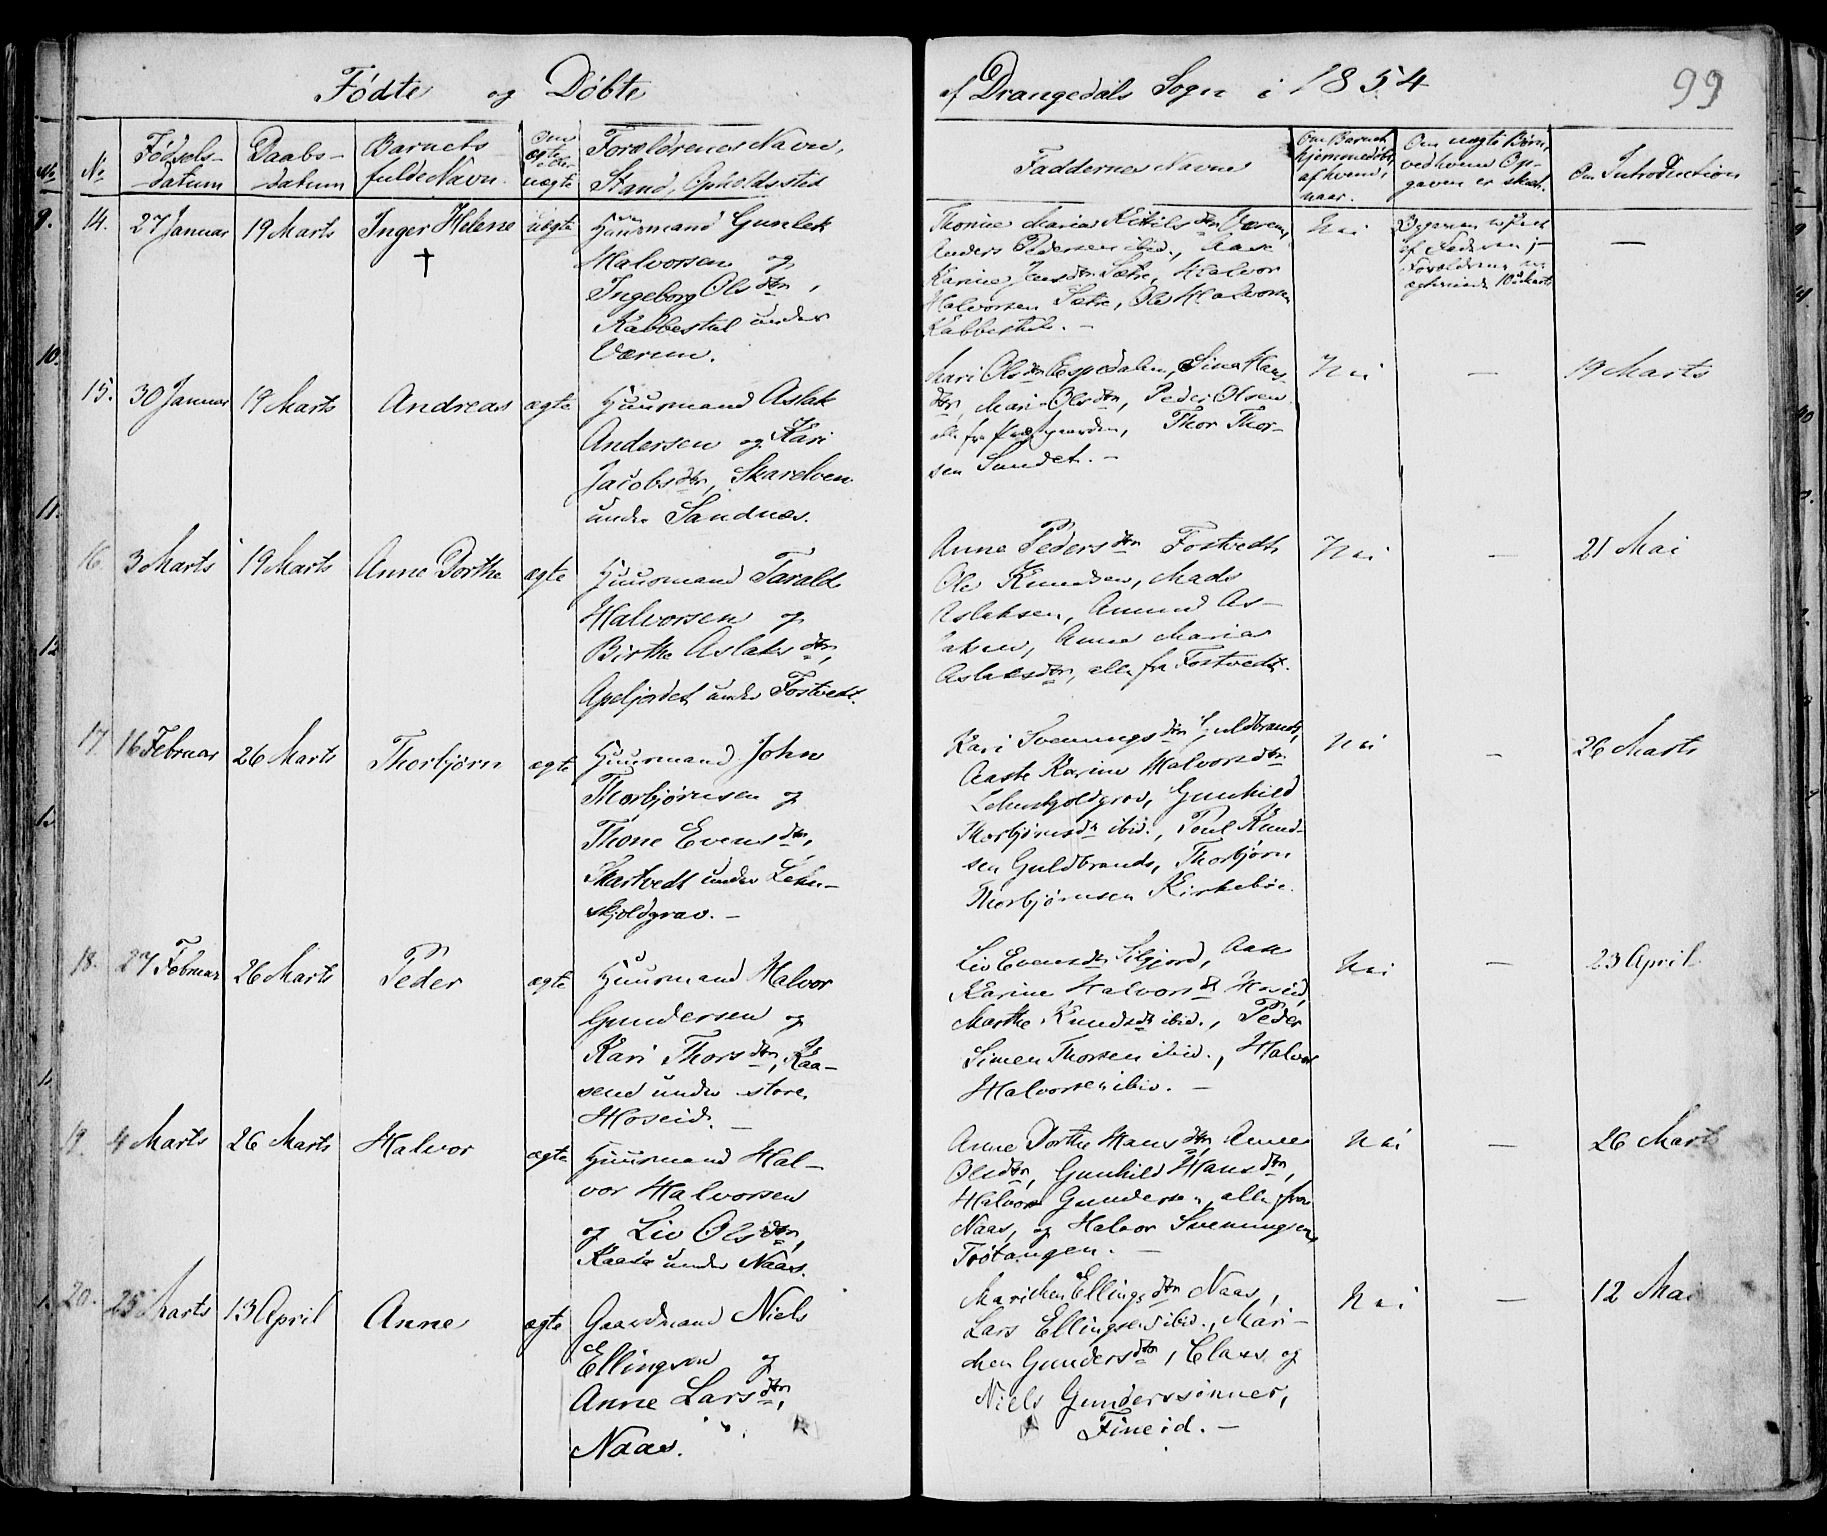 Fødte og Døbte
af Drangedals Sogn i 1854
99
No
Fødsels-
datum
Daabs-
datum
Barnets
fulde Navn.
Om
ægte
eller
uægte
Forældrenes Navn,
Stand, Opholdssted
Faddernes Navne
Om Barnet
hjemmedøbt,
af hvem,
naar.
Om uægte Børn,
ved hvem Op-
gaven er skeet.
Om Introduction
14. 27 Januar 19 Marts Inger Helene uægte
†
Huusmand Gunlek
Halvorsen og
Ingeborg Olsdtr,
Kabbestul under
Værum.
Thonine Maria Kittilsdtr Værum,
Anders Pedersen ibid., Aase
Karine Jensdtr Sætre, Halvor
Halvorsen Sætre, Ole Halvorsen
Kabbestul. -
Nei
af Faderen
Forældrene
10 Marts
—
15. 30 Januar 19 Marts Andreas ægte
Huusmand Aslak
Andersen og Kari
Jacobsdtr, Skarelven
under Sandnæs.
Mari Olsdtr Espedalen, Sina Hans-
dtr, Mari Olsdtr, Peder Olsen
alle fra Præstgaarden, Thor Thor-
sen Sundet. -
Nei — 19 Marts
16 3 Marts 19 Marts Anne Dorthe ægte
Huusmand Tarald
Halvorsen og
Birthe Aslaksdtr,
Apeljordet under Fostvedt.
Anne Pedersdtr Fostvedt,
Ole Knudsen, Mads
Aslaksen, Amund As-
laksen, Anne Maria
Aslaksdtr, alle fra Fostvedt.
Nei — 21 Mai
17. 16 Februar 26 Marts Thorbjørn ægte
Huusmand John
Thorbjørnsen og
Thone Evensdtr,
Skartvedt under Lehn-
skjoldgrav. -
Kari Svenungsdtr Guldbrands,
Aaste Karine Halvorsdtr
Lehnskjoldgrav, Gunhild
Thorbjørnsdtr ibid., Poul Knud-
sen Guldbrands, Thorbjørn
Thorbjørnsen Kirkebøe.
Nei — 26 Marts
18. 27 Februar 26 Marts Peder ægte
Huusmand Halvor
Gundersen og
Kari Thorsdtr, Kaa-
send under store
Hoseid. -
Liv Evensdtr Siljord, Aase
Karine Halvorsdtr Hoseid,
Marthe Knudsdtr ibid., Peder
Simen Thorsen ibid., Halvor
Halvorsen ibid. -
Nei — 23 April
19. 4 Marts 26 Marts Halvor ægte
Huusmand Hal-
vor Halvorsen
og Liv Olsdtr,
Kaasa under Naas.
Anne Dorthe Hansdtr, Anne
Olsdtr, Gunhild Hansdtr,
Halvor Gundersen, alle fra
Naas, og Halvor Svenungsen,
Trøtangen. -
Nei — 26 Marts
20. 25 Marts 13 April Anne ægte
Gaardmand Niels
Ellingsen og
Anne Larsdtr,
Naas.
Marichen Ellingsdtr Naas,
Lars Ellingsen ibid., Mari-
chen Gundersdtr, Claes og
Niels Gunderssønner,
Fineid. -
Nei — 12 Mai